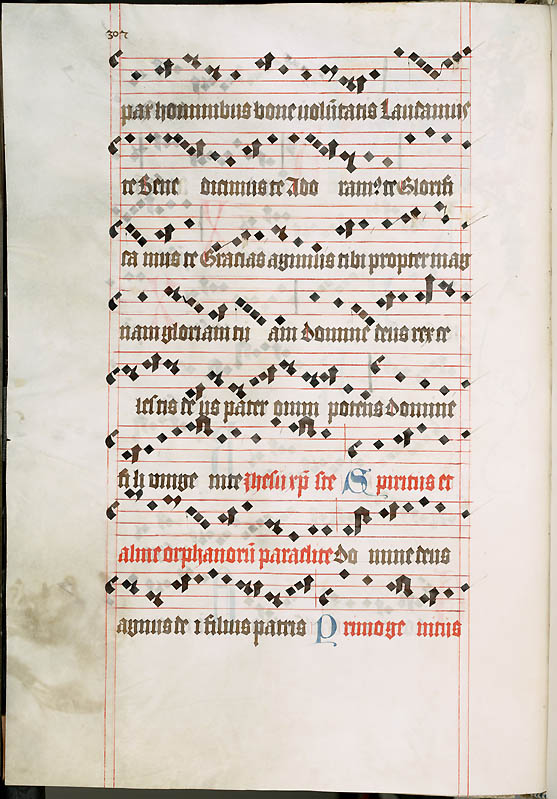 307
pax hominibus bone uolūtatis Laudamus
te Bene dicimus te Ado ram⁹ te Glorifi
ca mus te Gracias agimus tibi propter mag
nam gloriam tu am domine deus rex ce
lestis de us pater omni potens domine
fi li vnige nite Jhesu xp̄ ste Spiritus et
alme orphanorū paraclite Do mine deus
agnus de i filius patris Primoge nitus